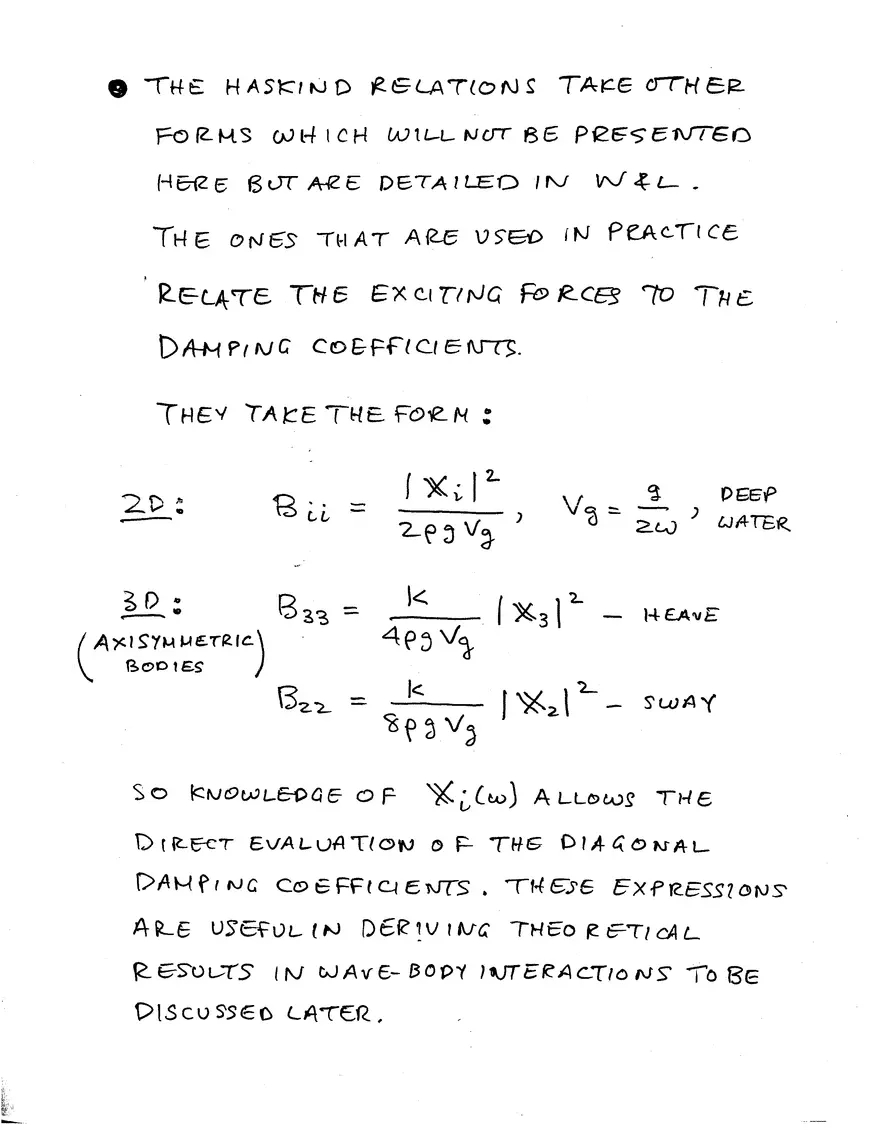 ● THE HASKIND RELATIONS TAKE OTHER
FORMS WHICH WILL NOT BE PRESENTED
HERE BUT ARE DETAILED IN W&L.
THE ONES THAT ARE USED IN PRACTICE
RELATE THE EXCITING FORCES TO THE
DAMPING COEFFICIENTS.
THEY TAKE THE FORM:
2D: B_ii = |𝕏_i|² / (2ρg V_g), V_g = g / 2ω, DEEP WATER
3D: (AXISYMMETRIC BODIES) B_33 = k / (4ρg V_g) |𝕏_3|² — HEAVE
B_22 = k / (8ρg V_g) |𝕏_2|² — SWAY
SO KNOWLEDGE OF 𝕏_i(ω) ALLOWS THE
DIRECT EVALUATION OF THE DIAGONAL
DAMPING COEFFICIENTS. THESE EXPRESSIONS
ARE USEFUL IN DERIVING THEORETICAL
RESULTS IN WAVE-BODY INTERACTIONS TO BE
DISCUSSED LATER.